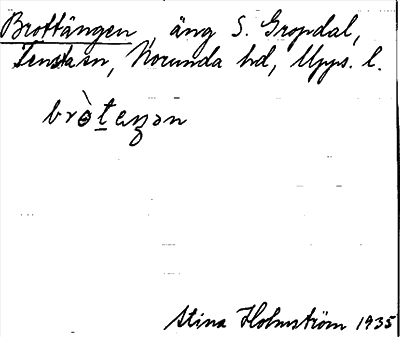 Brottängen, äng S. Gropdal,
Tensta sn, Norunda hd, Upps. l.
bròt̲eŋən
Stina Holmström 1935